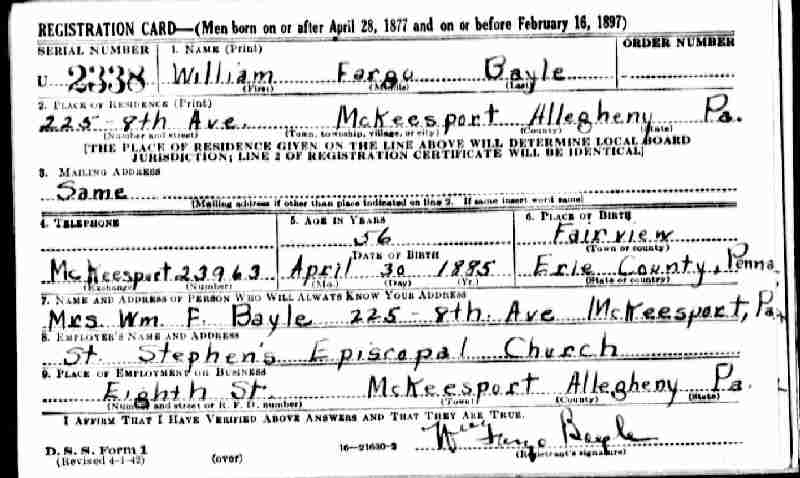 REGISTRATION CARD—(Men born on or after April 28, 1877 and on or before February 16, 1897)
SERIAL NUMBER 1. NAME (Print) ORDER NUMBER
U 2338 William Fargo Bayle
(First) (Middle) (Last)
2. PLACE OF RESIDENCE (Print)
225 - 8th Ave. McKeesport Allegheny Pa.
(Number and street) (Town, township, village, or city) (County) (State)
[THE PLACE OF RESIDENCE GIVEN ON THE LINE ABOVE WILL DETERMINE LOCAL BOARD
JURISDICTION; LINE 2 OF REGISTRATION CERTIFICATE WILL BE IDENTICAL]
3. MAILING ADDRESS
Same
(Mailing address if other than place indicated on line 2. If same insert word same)
4. TELEPHONE 5. AGE IN YEARS 6. PLACE OF BIRTH
56 Fairview
DATE OF BIRTH (Town or county)
McKeesport 23963 April 30 1885 Erie County, Penna
(Exchange) (Number) (Mo.) (Day) (Yr.) (State or country)
7. NAME AND ADDRESS OF PERSON WHO WILL ALWAYS KNOW YOUR ADDRESS
Mrs. Wm. F. Bayle 225 - 8th Ave McKeesport, Pa.
8. EMPLOYER'S NAME AND ADDRESS
St. Stephen's Episcopal Church
9. PLACE OF EMPLOYMENT OR BUSINESS
Eighth St. McKeesport Allegheny Pa.
(Number and street or R. F. D. number) (Town) (County) (State)
I AFFIRM THAT I HAVE VERIFIED ABOVE ANSWERS AND THAT THEY ARE TRUE.
Wm Fargo Bayle
D. S. S. Form 1 16—21630-2 (Registrant's signature)
(Revised 4-1-42) (over)